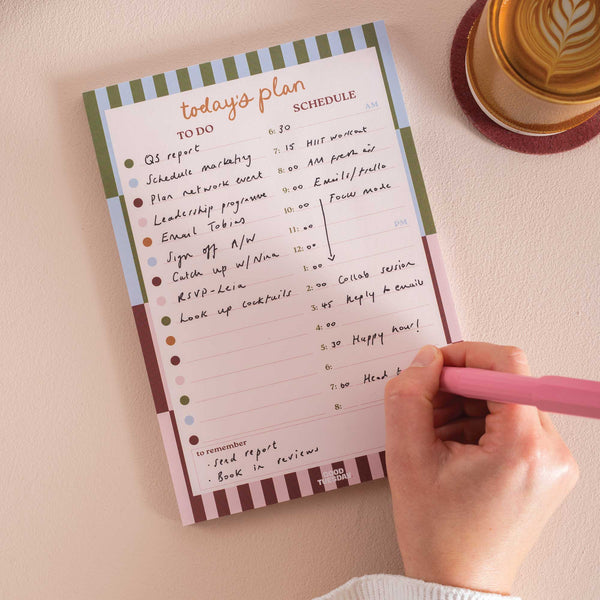 today's plan
TO DO
QS report
Schedule marketing
Plan network event
Leadership programme
Email Tobias
Sign off A/W
Catch up w/Nina
RSVP-Leia
Look up cocktails
SCHEDULE
AM
6: 30
7: 15 HIIT workout
8: 00 AM fresh air
9: 00 Emails/trello
10: 00 Focus mode
11: 00
12: 00
PM
1: 00
2: 00 Collab session
3: 45 Reply to email
4: 00
5: 30 Happy hour!
6:
7: 00 Head
8:
to remember
· Send report
· Book in reviews
GOOD
TUESDAY